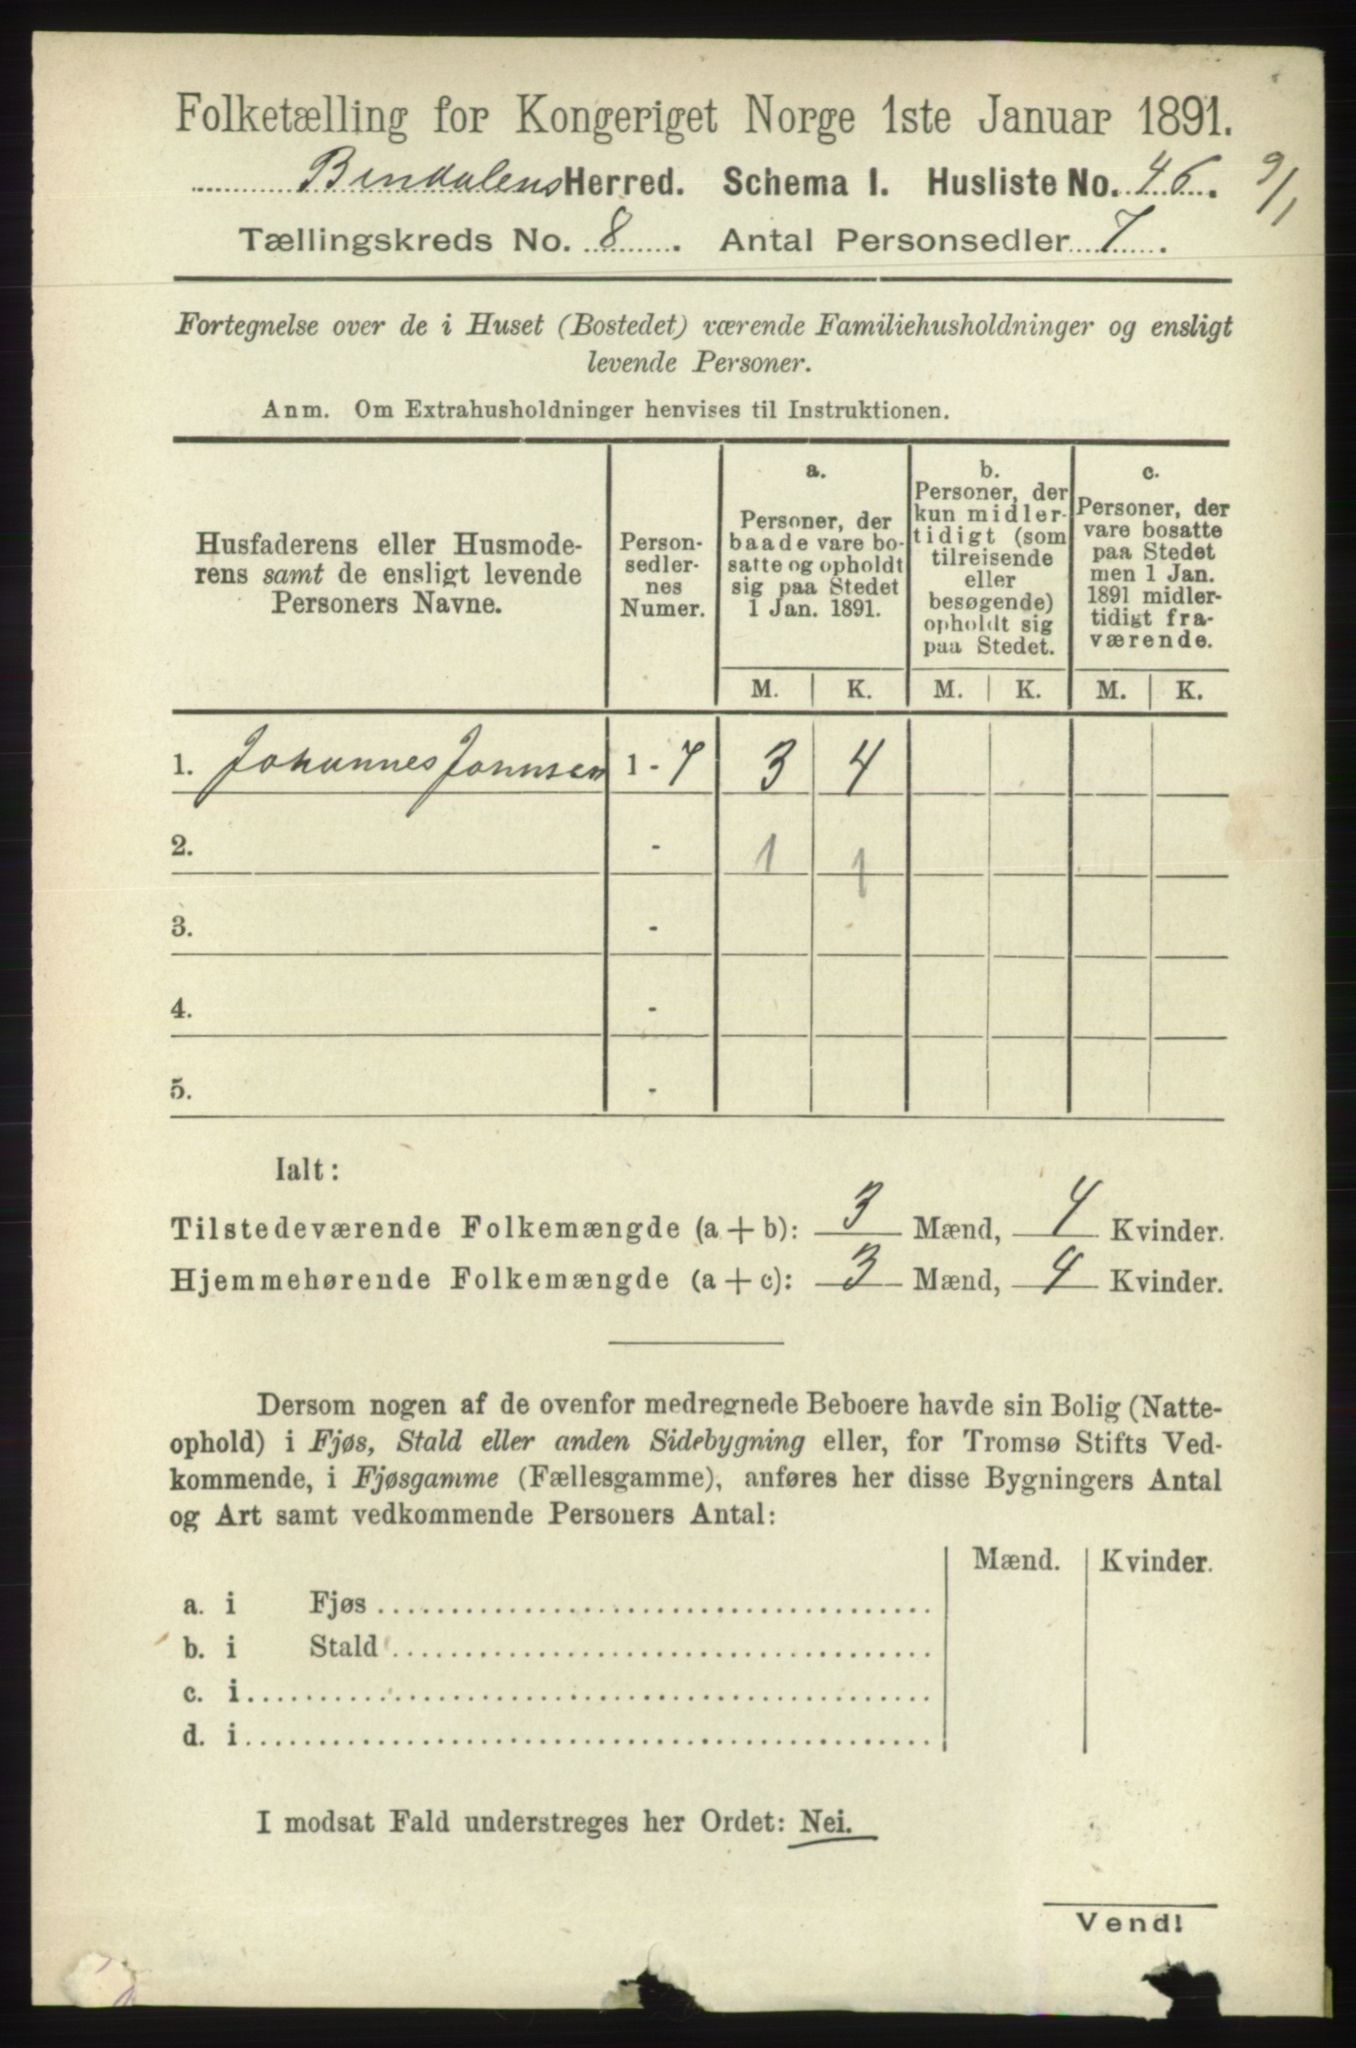 Folketælling for Kongeriget Norge 1ste Januar 1891.
Bindalens Herred. Schema I. Husliste No. 46. 9/1
Tællingskreds No. 8. Antal Personsedler 7.
Fortegnelse over de i Huset (Bostedet) værende Familiehusholdninger og ensligt
levende Personer.
Anm. Om Extrahusholdninger henvises til Instruktionen.
Husfaderens eller Husmode-
rens samt de ensligt levende
Personers Navne.
Person-
sedler-
nes
Numer.
a.
Personer, der
baade vare bo-
satte og opholdt
sig paa Stedet
1 Jan. 1891.
b.
Personer, der
kun midler-
tidigt (som
tilreisende
eller
besøgende)
opholdt sig
paa Stedet.
c.
Personer, der
vare bosatte
paa Stedet
men 1 Jan.
1891 midler-
tidigt fra-
værende.
M. K. M. K. M. K.
1. Johannes Jonnsen 1 - 7 3 4
2. - 1 1
3. -
4. -
5. -
Ialt:
Tilstedeværende Folkemængde (a + b): 3 Mænd, 4 Kvinder.
Hjemmehørende Folkemængde (a + c): 3 Mænd, 4 Kvinder.
Dersom nogen af de ovenfor medregnede Beboere havde sin Bolig (Natte-
ophold) i Fjøs, Stald eller anden Sidebygning eller, for Tromsø Stifts Ved-
kommende, i Fjøsgamme (Fællesgamme), anføres her disse Bygningers Antal
og Art samt vedkommende Personers Antal:
Mænd. Kvinder.
a. i Fjøs
b. i Stald
c. i
d. i
I modsat Fald understreges her Ordet: Nei.
Vend!